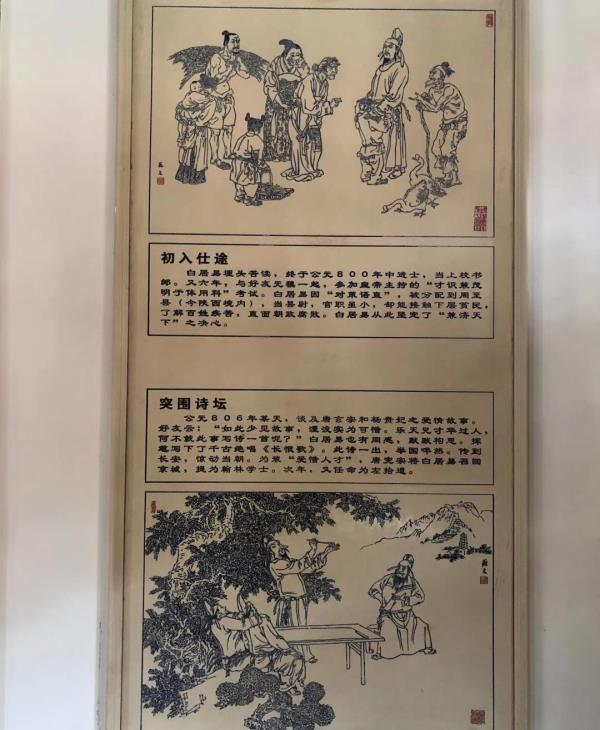 初入仕途
白居易埋头苦读，终于公元800年中进士，当上校书
郎。又六年，与好友元稹一起，参加皇帝主持的“才识兼茂
明于体用科”考试。白居易因“对策语直”，被分配到周至
县（今陕西境内），当县尉，官职虽小，却能接触下层贫民，
了解百姓疾苦，直面朝政腐败。白居易从此坚定了“兼济天
下”之决心。
突围诗坛
公元806年某天，谈及唐玄宗和杨贵妃之爱情故事。
好友云：“如此少见故事，湮没实为可惜。乐天兄才华过人，
何不就此事写诗一首呢？”白居易也有同感，默默构思。挥
毫写下了千古绝唱《长恨歌》。此诗一出，举国哗然。传到
长安，惊动当朝。为表“爱惜人才”，唐宪宗将白居易召回
京城，提为翰林学士。次年，又任命为左拾遗。